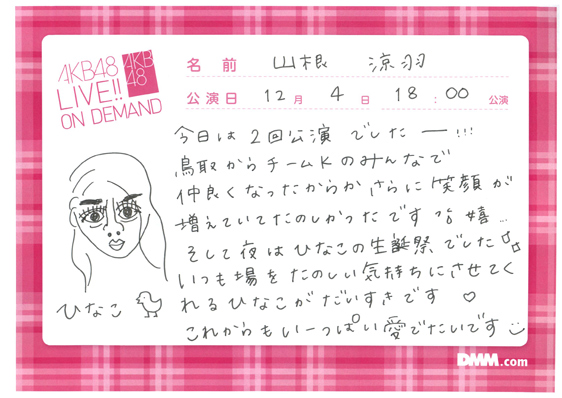 AKB48
LIVE!!
ON DEMAND
AKB
48
名前 山根 涼羽
公演日 12月 4日 18:00 公演
今日は2回公演でしたー!!!
鳥取からチームKのみんなで
仲良くなったからか さらに笑顔が
増えていてたのしかったです 嬉…
そして夜はひなこの生誕祭でした
いつも場をたのしい気持ちにさせてく
れるひなこがだいすきです ♡
これからもいーっぱい愛でたいです
ひなこ
DMM.com